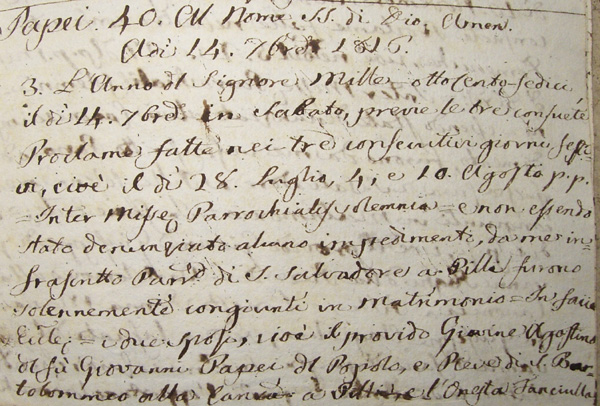 Papei. 40. Al Nome SS. di Dio. Amen.
Adì 14. 7bre. 1816.
3. L'Anno dl Signore Mille-ottocento-sedici
il dì 14. 7bre. in Sabato, previe le tre consuete
Proclame fatte nei tre consecutivi giorni festi-
vi, cioè il dì 28. Luglio, 4, e 10. Agosto p. p.
= Inter Missę Parrochialis solemnia = e non essendo
stato denunziato alcuno impedimento, da me in-
frascritto Parr.o di S. Salvadore a Pilli furono
solennemente congiunti in Matrimonio = In facie
Eccle; = i due sposi, cioè il provido Giovine Agostino
di fù Giovanni Papei dl Popolo, e Pieve di S. Bar-
tolommeo alla l'Onesta Fanciulla